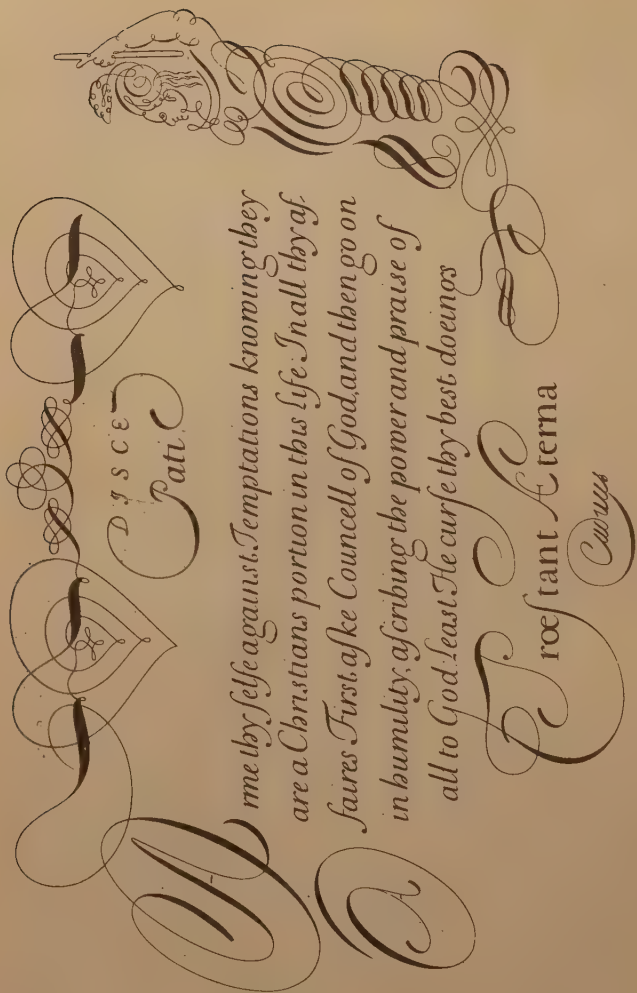 DISCE
Pati.
Arme thy ſelfe against Temptations knowing they
are a Chriſtians portion in this life In all thy af-
faires First aſke Councell of God, and then go on
in humility, aſcribing the power and praise of
all to God: Least He curſe thy best doeings
Prœſtant Æterna